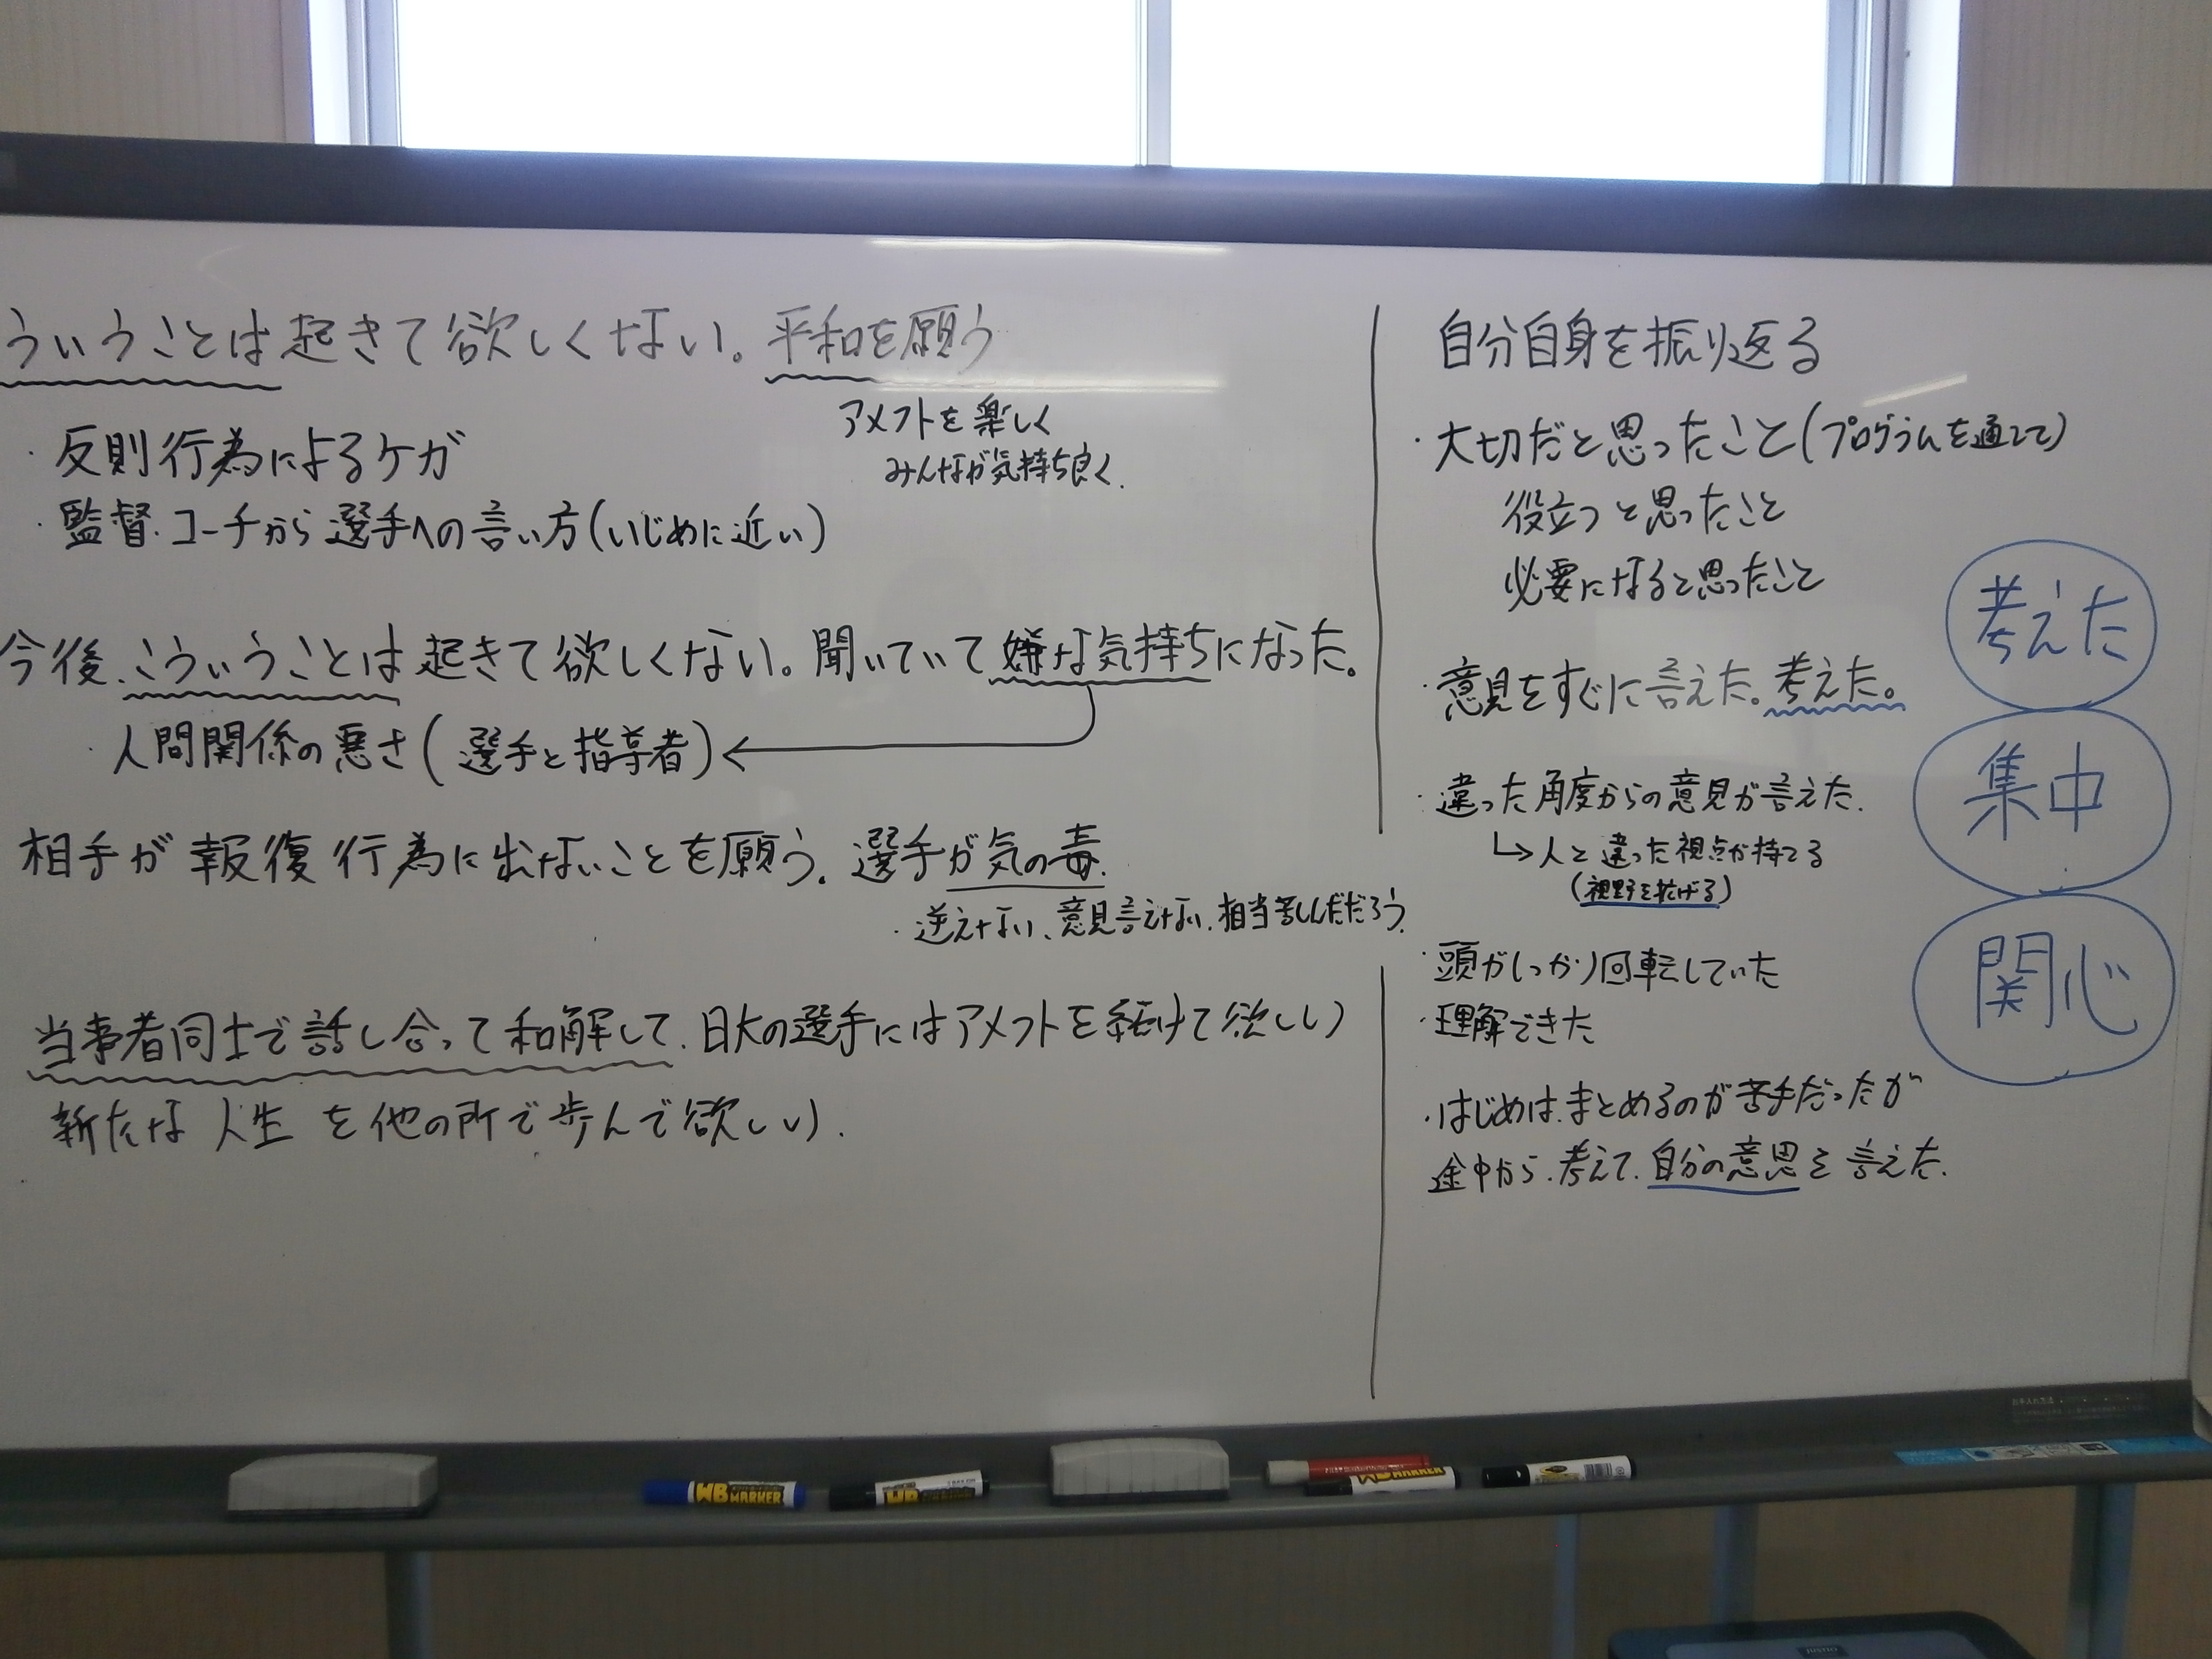 ういうことは起きて欲しくない。平和を願う
アメフトを楽しく
みんなが気持ち良く.
・反則行為によるケガ
・監督.コーチから選手への言い方(いじめに近い)
今後、こういうことは起きて欲しくない。聞いていて嫌な気持ちになった。
・人間関係の悪さ(選手と指導者)
相手が報復行為に出ないことを願う.選手が気の毒.
・逆えない、意見言えない.相当苦しんだだろう.
当事者同士で話し合って和解して.日大の選手にはアメフトを続けて欲しい
新たな人生を他の所で歩んで欲しい.
自分自身を振り返る
・大切だと思ったこと(プログラムを通して)
役立つと思ったこと
必要になると思ったこと
・意見をすぐに言えた。考えた。
・違った角度からの意見が言えた.
↳人と違った視点が持てる
(視野を拡げる)
・頭がしっかり回転していた
・理解できた
・はじめは.まとめるのが苦手だったが
途中から.考えて.自分の意思を言えた.
考えた
集中
関心
WB MARKER
WB
WB MARKER